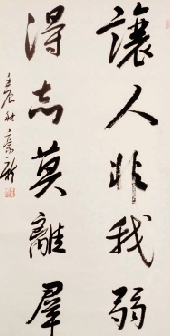 讓人非我弱
得志莫離羣